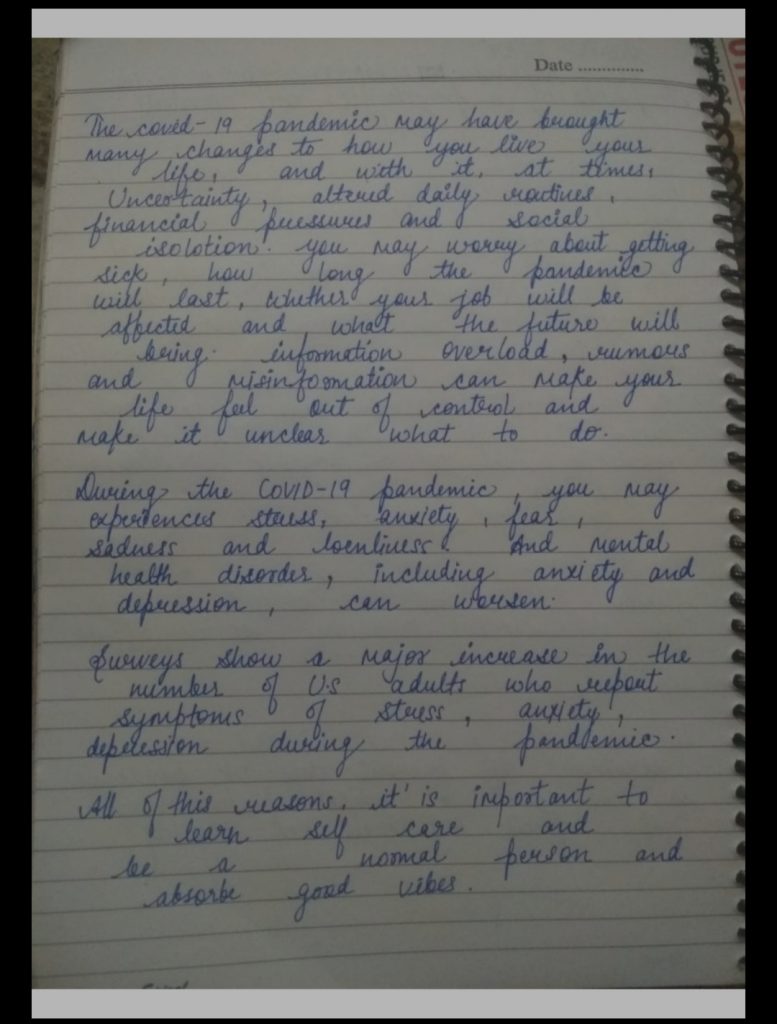 Date ..............
The covid-19 pandemic may have brought
many changes to how you live your
life, and with it, at times,
Uncertainty, altered daily routines,
financial pressures and social
isolotion. you may worry about getting
sick, how long the pandemic
will last, whether your job will be
affected and what the future will
bring. information overload, rumous
and misinformation can make your
life feel out of control and
make it unclear what to do.
During the COVID-19 pandemic, you may
experiences stress, anxiety, fear,
sadness and loenliness. And mental
health disorder, including anxiety and
depression, can worsen.
Surveys show a major increase in the
number of U.S adults who report
symptoms of stress, anxiety,
depression during the pandemic.
All of this reasons, it' is important to
learn self care and
be a normal person and
absorbe good vibes.